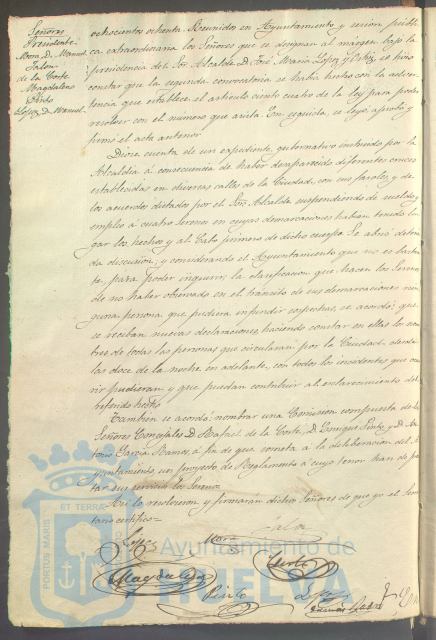 Señores
Presidente
Mora, D. Manuel
de la Corte
Magdaleno
Pinto
Lopez, D. Manuel
ochocientos ochenta. Reunidos en Ayuntamiento y sesion públi
ca extraordinaria los Señores que se designan al márgen, bajo la
presidencia del Sor. Alcalde D. José Maria Lopez y Ortiz, se hizo
constar que la segunda convocatoria se habia hecho con la adver
tencia que establece el artículo ciento cuatro de la ley para poder
resolver con el número que asista. En seguida, se leyó, aprobó y
firmó el acta anterior.
Diose cuenta de un expediente gubernativo instruido por la
Alcaldía á consecuencia de haber desaparecido diferentes
establecidas en diversas calles de la Ciudad, con sus faroles, y de
los acuerdos dictados por el Sor. Alcalde suspendiendo de sueldo y
empleo á cuatro serenos en cuyas demarcaciones habian tenido lu
gar los hechos y al Cabo primero de dicho cuerpo. Se abrió deteni
da discusion; y considerando el Ayuntamiento que no es bastan
te, para poder inquirir, la que hacen los Serenos
de no haber observado en el tránsito de sus demarcaciones nin
guna persona que pudiera infundir sospechas, se acordó: que
se reciban nuevas declaraciones, haciendo constar en ellas los nom
bres de todas las personas que circularan por la Ciudad, desde
las doce de la noche en adelante, con todos los incidentes que ocu
rir pudieran y que puedan contribuir al esclarecimiento del
referido hecho.
Tambien se acordó: nombrar una Comision compuesta de los
Señores Concejales D. Rafael de la Corte, D. Enrique Pinto y D. An
tonio Garcia Ramos, á fin de que someta á la deliberacion del A
yuntamiento un Proyecto de Reglamento á cuyo tenor han de pres
tar sus servicios los Serenos.
Así lo resolvieron y firmarán dichos Señores de que yo el Secre
tario certifico=
Lopez
Mora
Corte
Magdaleno
Pinto
Lopez
PORTUS MARIS ET TERRAE
Ayuntamiento de
HUELVA